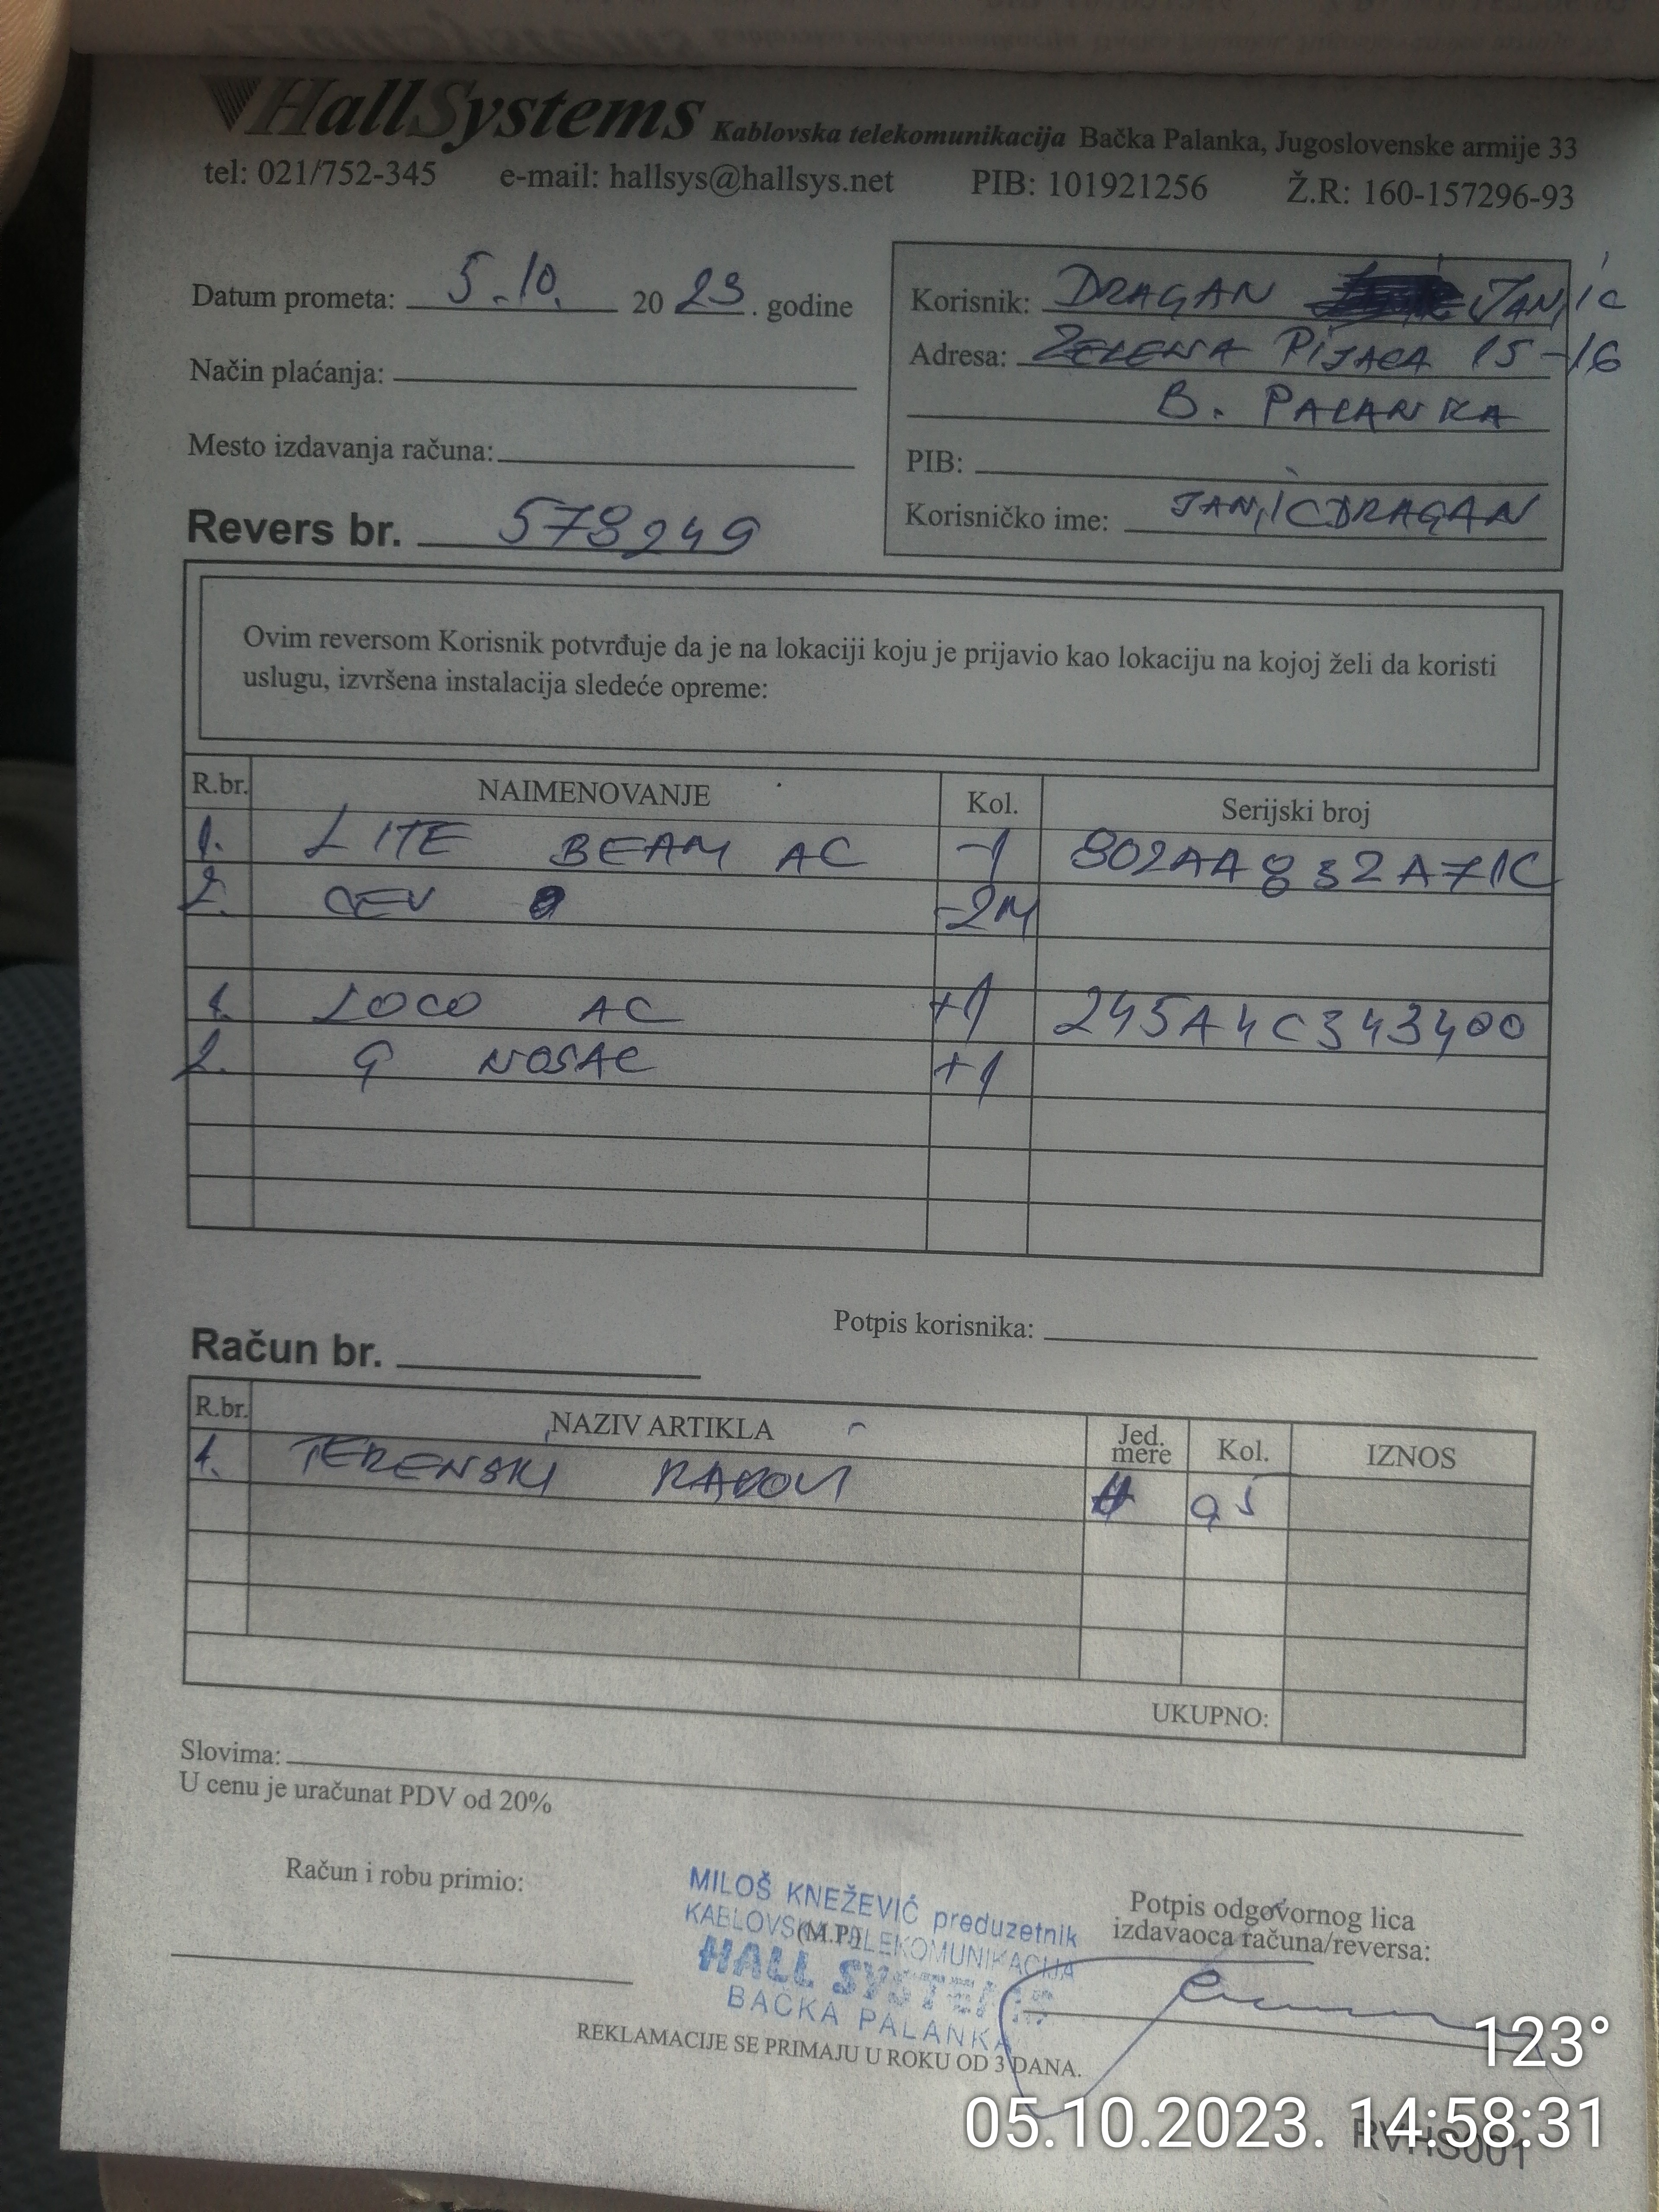 HallSystems Kablovska telekomunikacija Bačka Palanka, Jugoslovenske armije 33
tel: 021/752-345 e-mail: hallsys@hallsys.net PIB: 101921256 Ž.R: 160-157296-93
Datum prometa: 5.10. 2023. godine
Način plaćanja:
Mesto izdavanja računa:
Revers br. 578249
Korisnik: DRAGAN JANJIĆ
Adresa: ZELENA PIJACA 15-16
B. PALANKA
PIB:
Korisničko ime: JANJICDRAGAN
Ovim reversom Korisnik potvrđuje da je na lokaciji koju je prijavio kao lokaciju na kojoj želi da koristi
uslugu, izvršena instalacija sledeće opreme:
R.br. NAIMENOVANJE Kol. Serijski broj
1. LITE BEAM AC -1 802AA832A71C
2. CEV -2M
1. LOCO AC +1 245A4C343400
2. G NOSAC +1
Potpis korisnika:
Račun br.
R.br. NAZIV ARTIKLA Jed. mere Kol. IZNOS
1. TERENSKI RADOVI H 0,5
UKUPNO:
Slovima:
U cenu je uračunat PDV od 20%
Račun i robu primio:
(M.P.)
MILOŠ KNEŽEVIĆ preduzetnik
KABLOVSKA TELEKOMUNIKACIJA
HALL SYSTEMS
BAČKA PALANKA
Potpis odgovornog lica
izdavaoca računa/reversa:
REKLAMACIJE SE PRIMAJU U ROKU OD 3 DANA.
123°
05.10.2023. 14:58:31
RVHS001